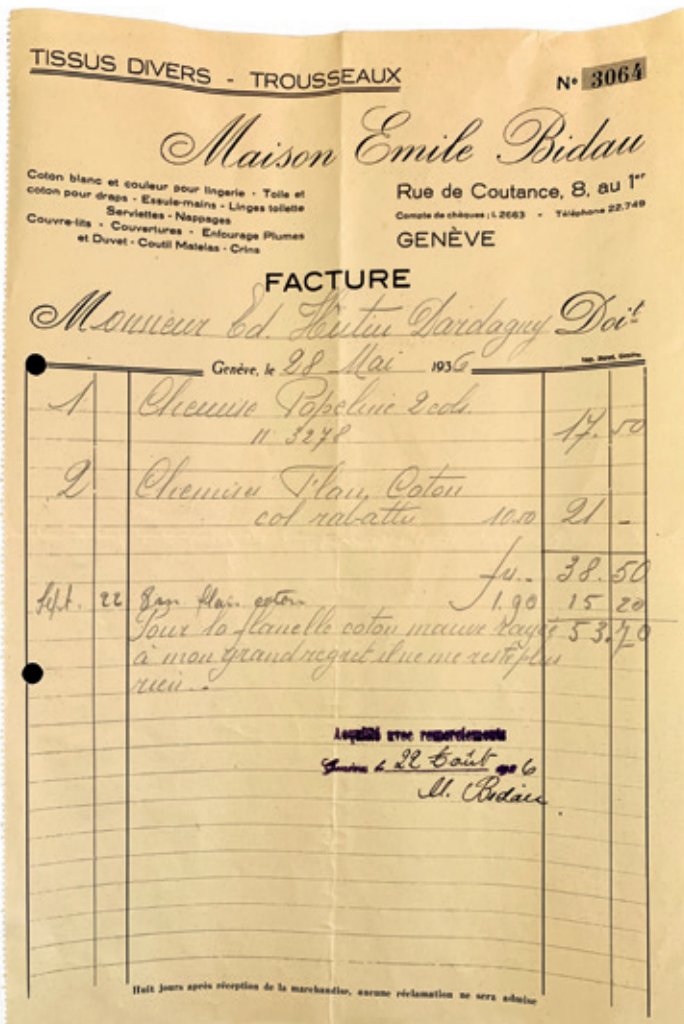 TISSUS DIVERS - TROUSSEAUX
N° 3064
Maison Emile Bidau
Coton blanc et couleur pour lingerie - Toile et
coton pour draps - Essuie-mains - Linges toilette
Serviettes - Nappages
Couvre-lits - Couvertures - Entourage Plumes
et Duvet - Coutil Matelas - Crins
Rue de Coutance, 8, au 1er
Compte de chèques : I. 2663 - Téléphone 22.749
GENÈVE
FACTURE
Monsieur Ed. Hutin Dardagny Doit
Genève, le 28 Mai 1936
1 Chemise Popeline 2 cols.
n 3278 17.50
2 Chemises Flan. Coton
col rabattu 10.50 21 -
fr.. 38.50
Sept. 22 8 m flan. coton 1.90 15 20
Pour la flanelle coton mauve rayée 53.70
à mon grand regret il ne me reste plus
rien..
Acquitté avec remerciements
Genève le 22 Août 1936
M. Bidau
Huit jours après réception de la marchandise, aucune réclamation ne sera admise